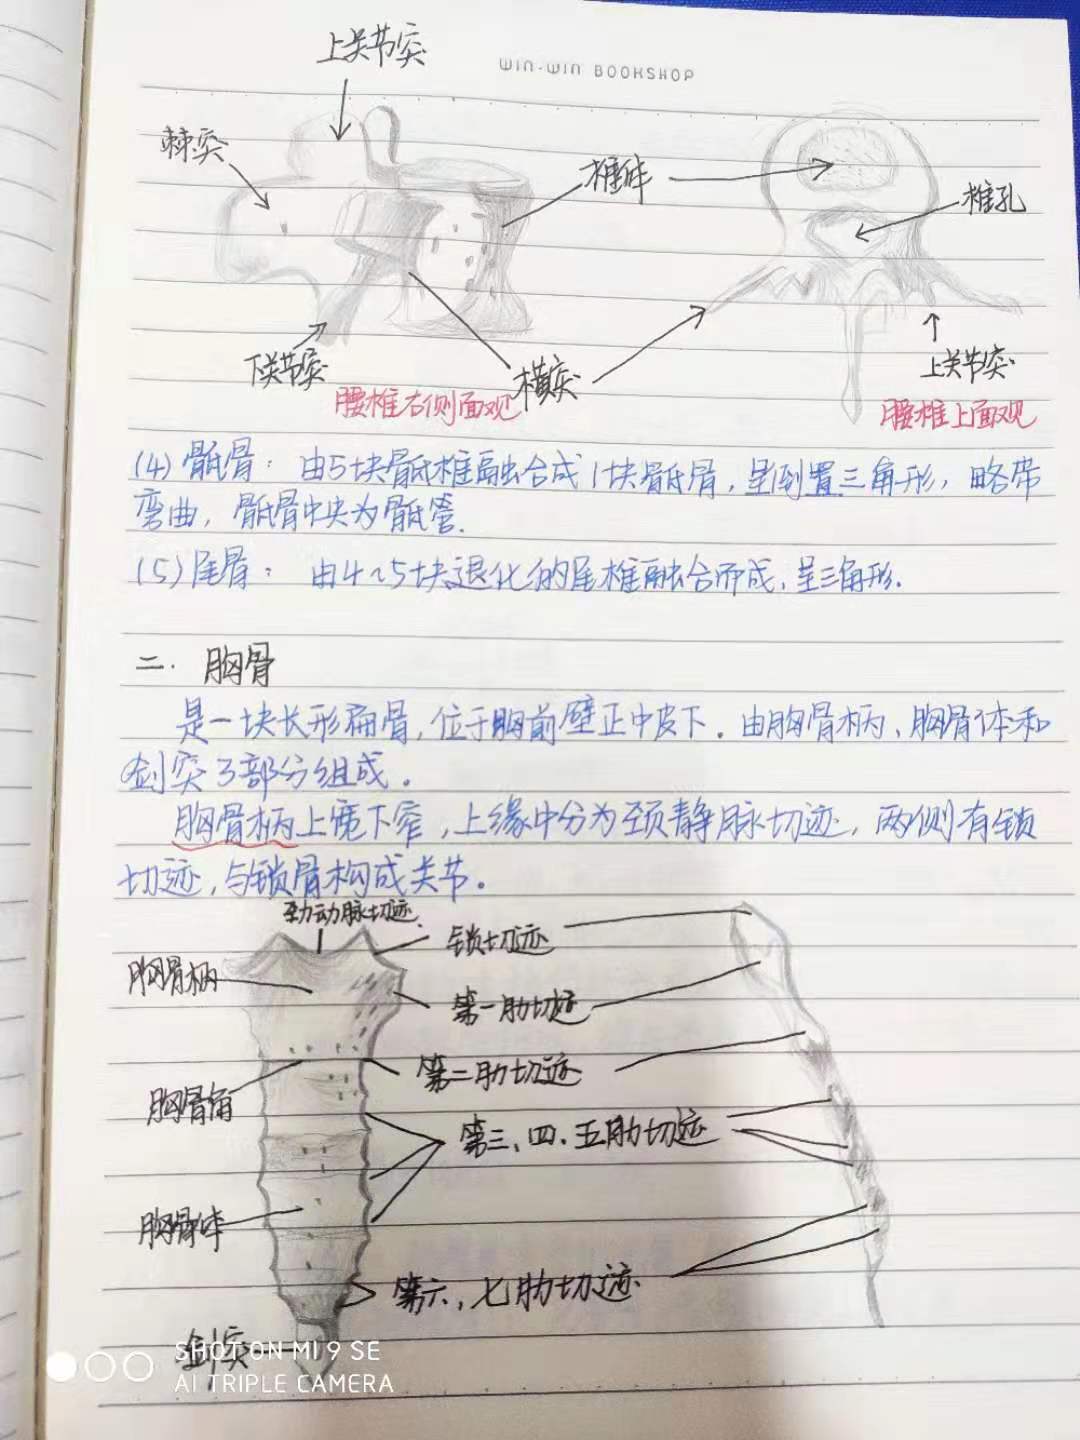 WIN-WIN BOOKSHOP
上关节突
棘突
椎体
椎孔
下关节突
横突
上关节突
腰椎右侧面观
腰椎上面观
(4)骶骨：由5块骶椎融合成1块骶骨，呈倒置三角形，略带
弯曲，骶骨中央为骶管.
(5)尾骨：由4~5块退化的尾椎融合而成，呈三角形.
二.胸骨
是一块长形扁骨，位于胸前壁正中皮下。由胸骨柄、胸骨体和
剑突3部分组成。
胸骨柄上宽下窄，上缘中分为颈静脉切迹，两侧有锁
切迹，与锁骨构成关节。
劲动脉切迹
锁切迹
胸骨柄
第一肋切迹
第二肋切迹
胸骨角
第三、四、五肋切迹
胸骨体
第六，七肋切迹
剑突
SHOT ON MI 9 SE
AI TRIPLE CAMERA